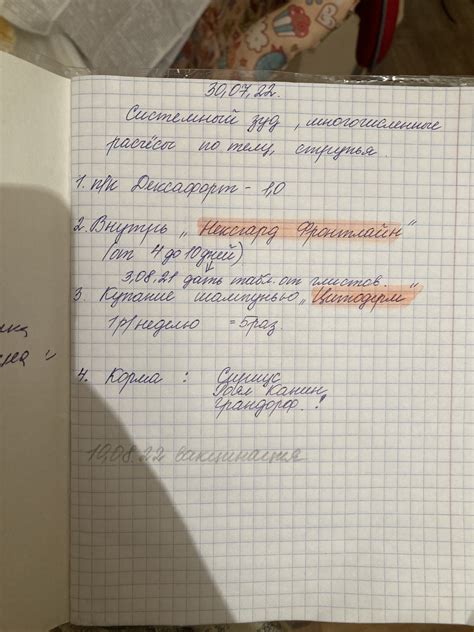 30.07.22.
Системный зуд, многочисленные
расчёсы по телу, струпья.
1. п/к Дексафорт - 1,0
2. Внутрь „Нексгард Фронтлайн"
(от 4 до 10 дней)
3.08.21 дать табл. от глистов.
3. Купание шампунью „Цитодерм"
1 р/неделю = 5 раз.
4. Корма: Сириус
Роял Канин
Грандорф. !
19.08.22 вакцинация